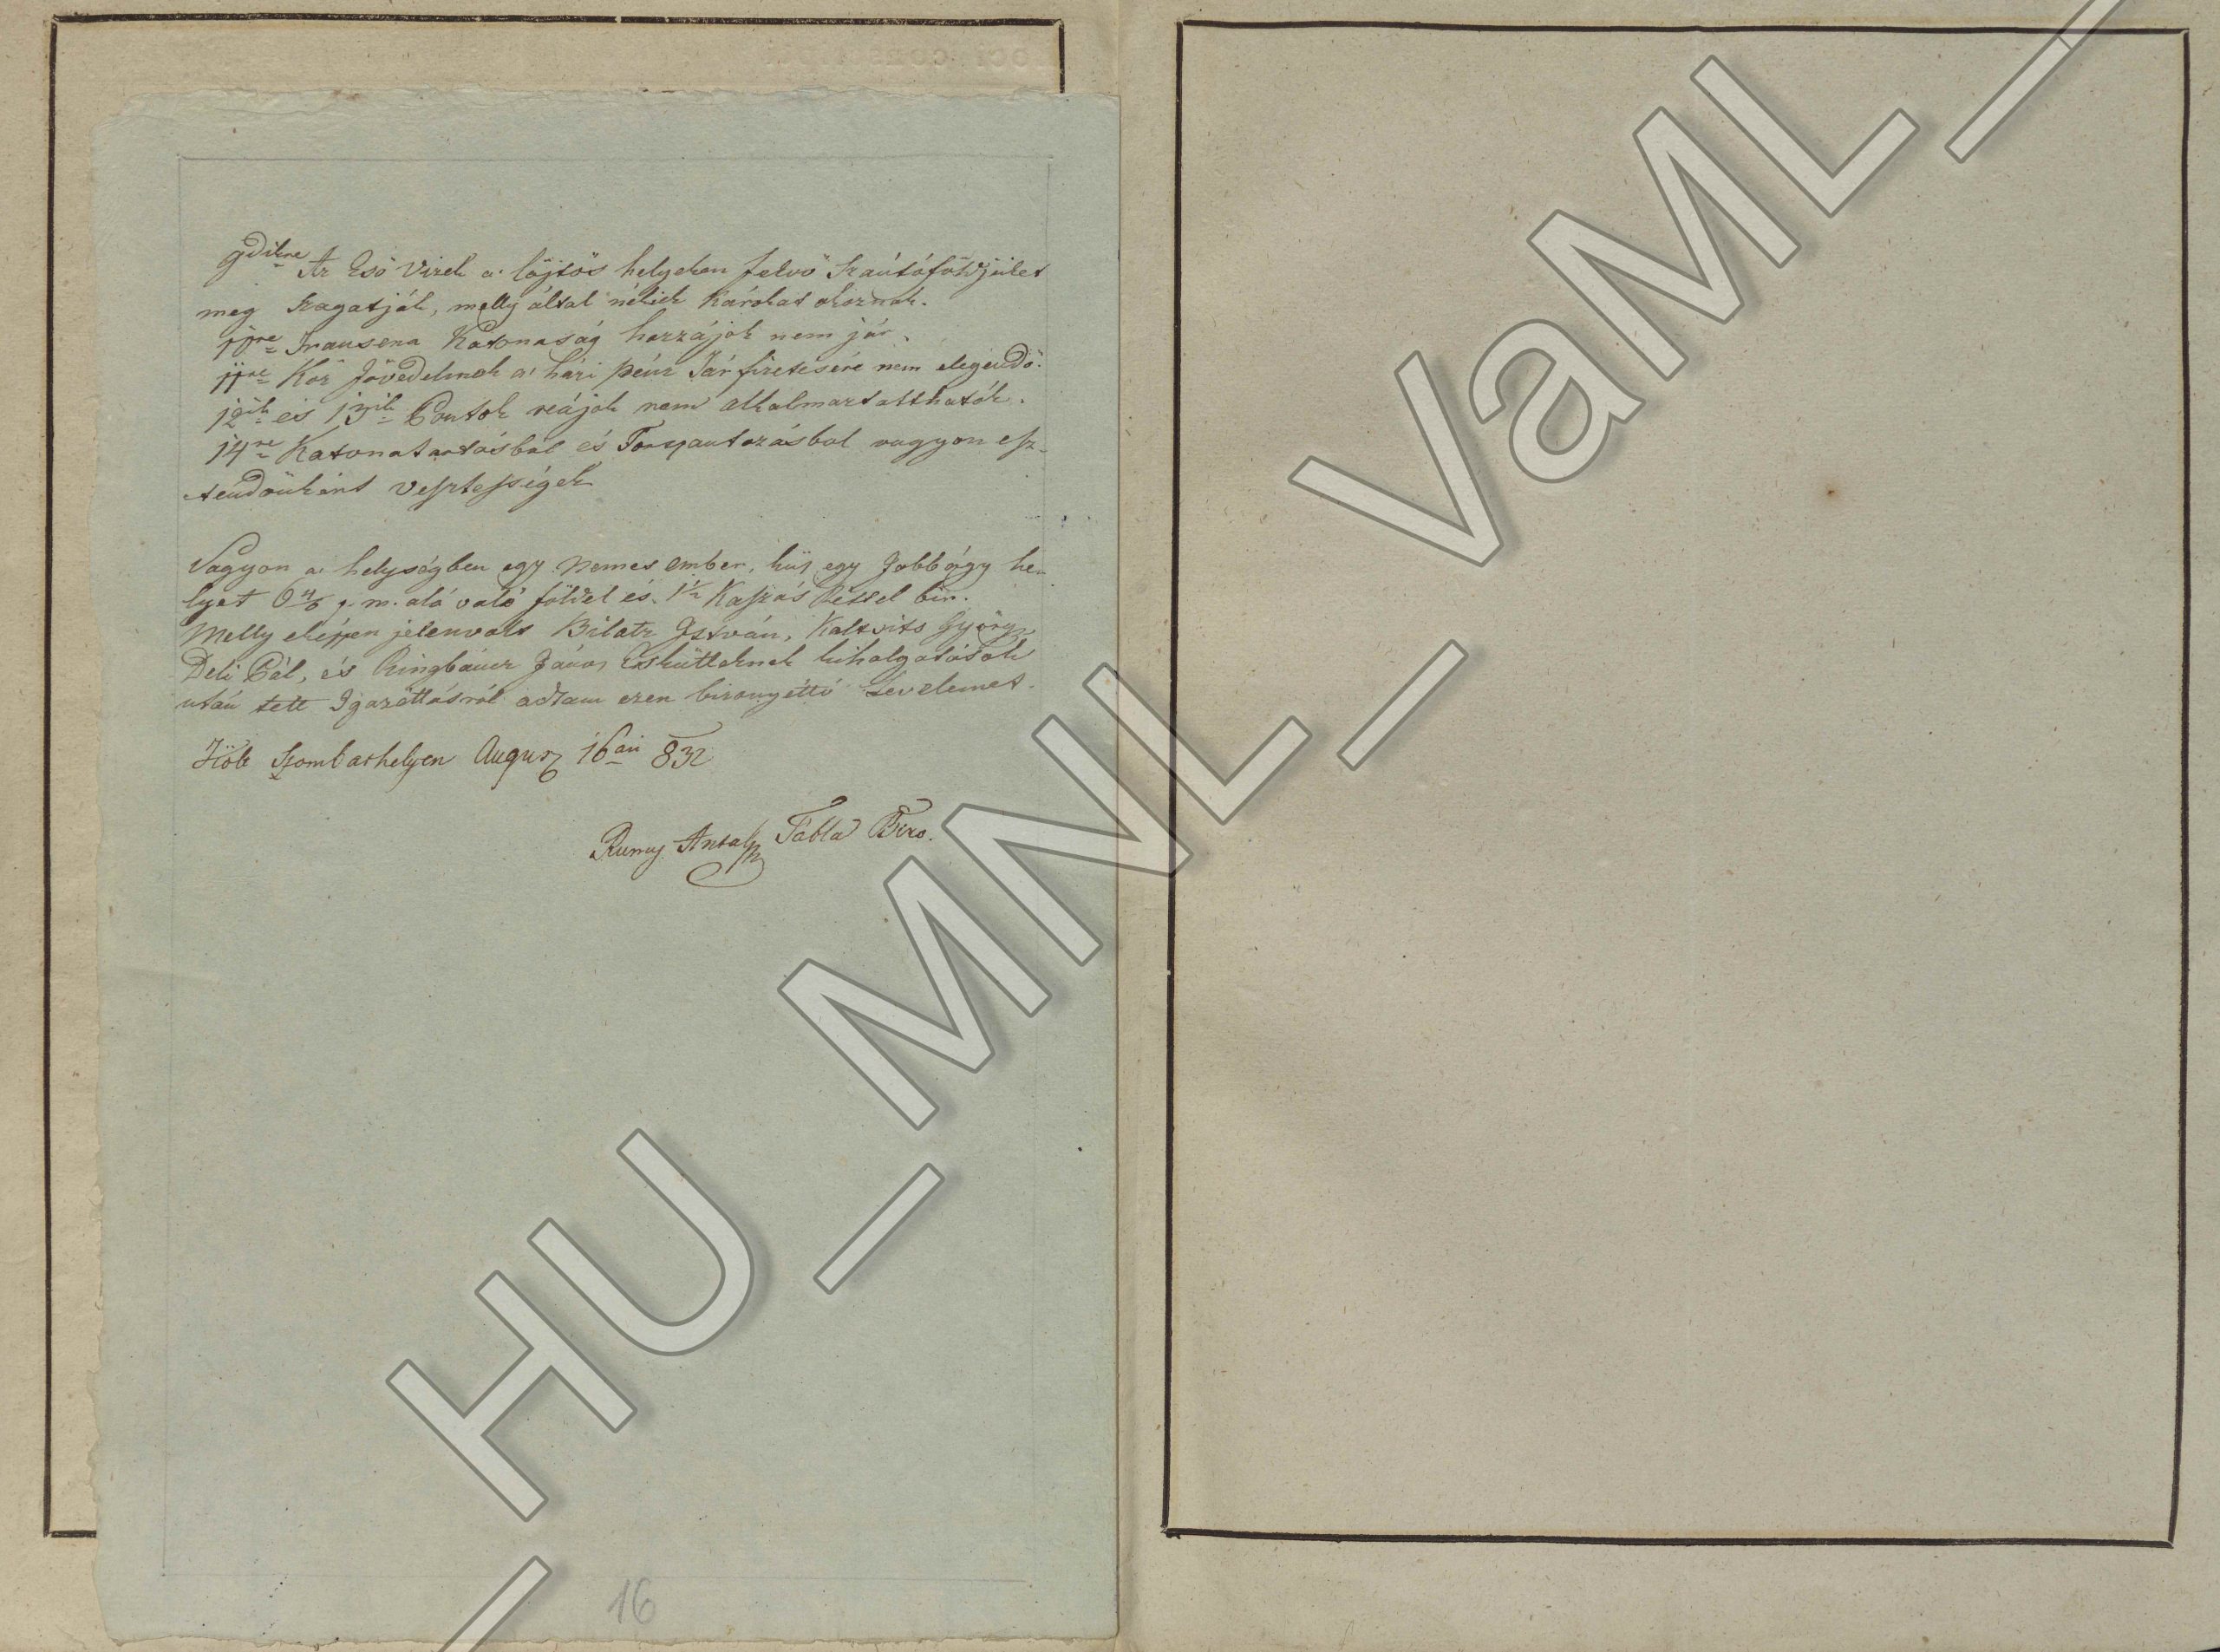 9dikre Az Eső vizek a' lőjtős helyeken felvő Szántófőldjüket
meg szagatják, melly által nékiek károkat okoznak.
10re Transena Katonaság hozzájok nem jár.
11re Kőz Jövedelmek a' házi pénz Tár fizetésére nem elegendő.
12ik és 13ik Pontok reájok nem alkalmaztatthatók.
14re Katonatartásbul és Forspantozásbul vagyon esz-
tendőnként vesztességek
Vagyon a' helységben egy Nemes ember, kis egy Jobbágy he-
lyet 6 4/8 p. m. alá való főldel és 1 1/2 Kaszás Réttel bir.
Melly eképpen jelenvolt Bilatz István, Kaltsits György,
Deli Pál, és Ringbauer János Eskütteknek kihalgatások
után tett Igazéttásról adtam ezen bizonyéttó Levelemet.
Költ Szombathelyen August 16án 832
Rumy Antal Tábla Biro.
16
HU_MNL_VaML_